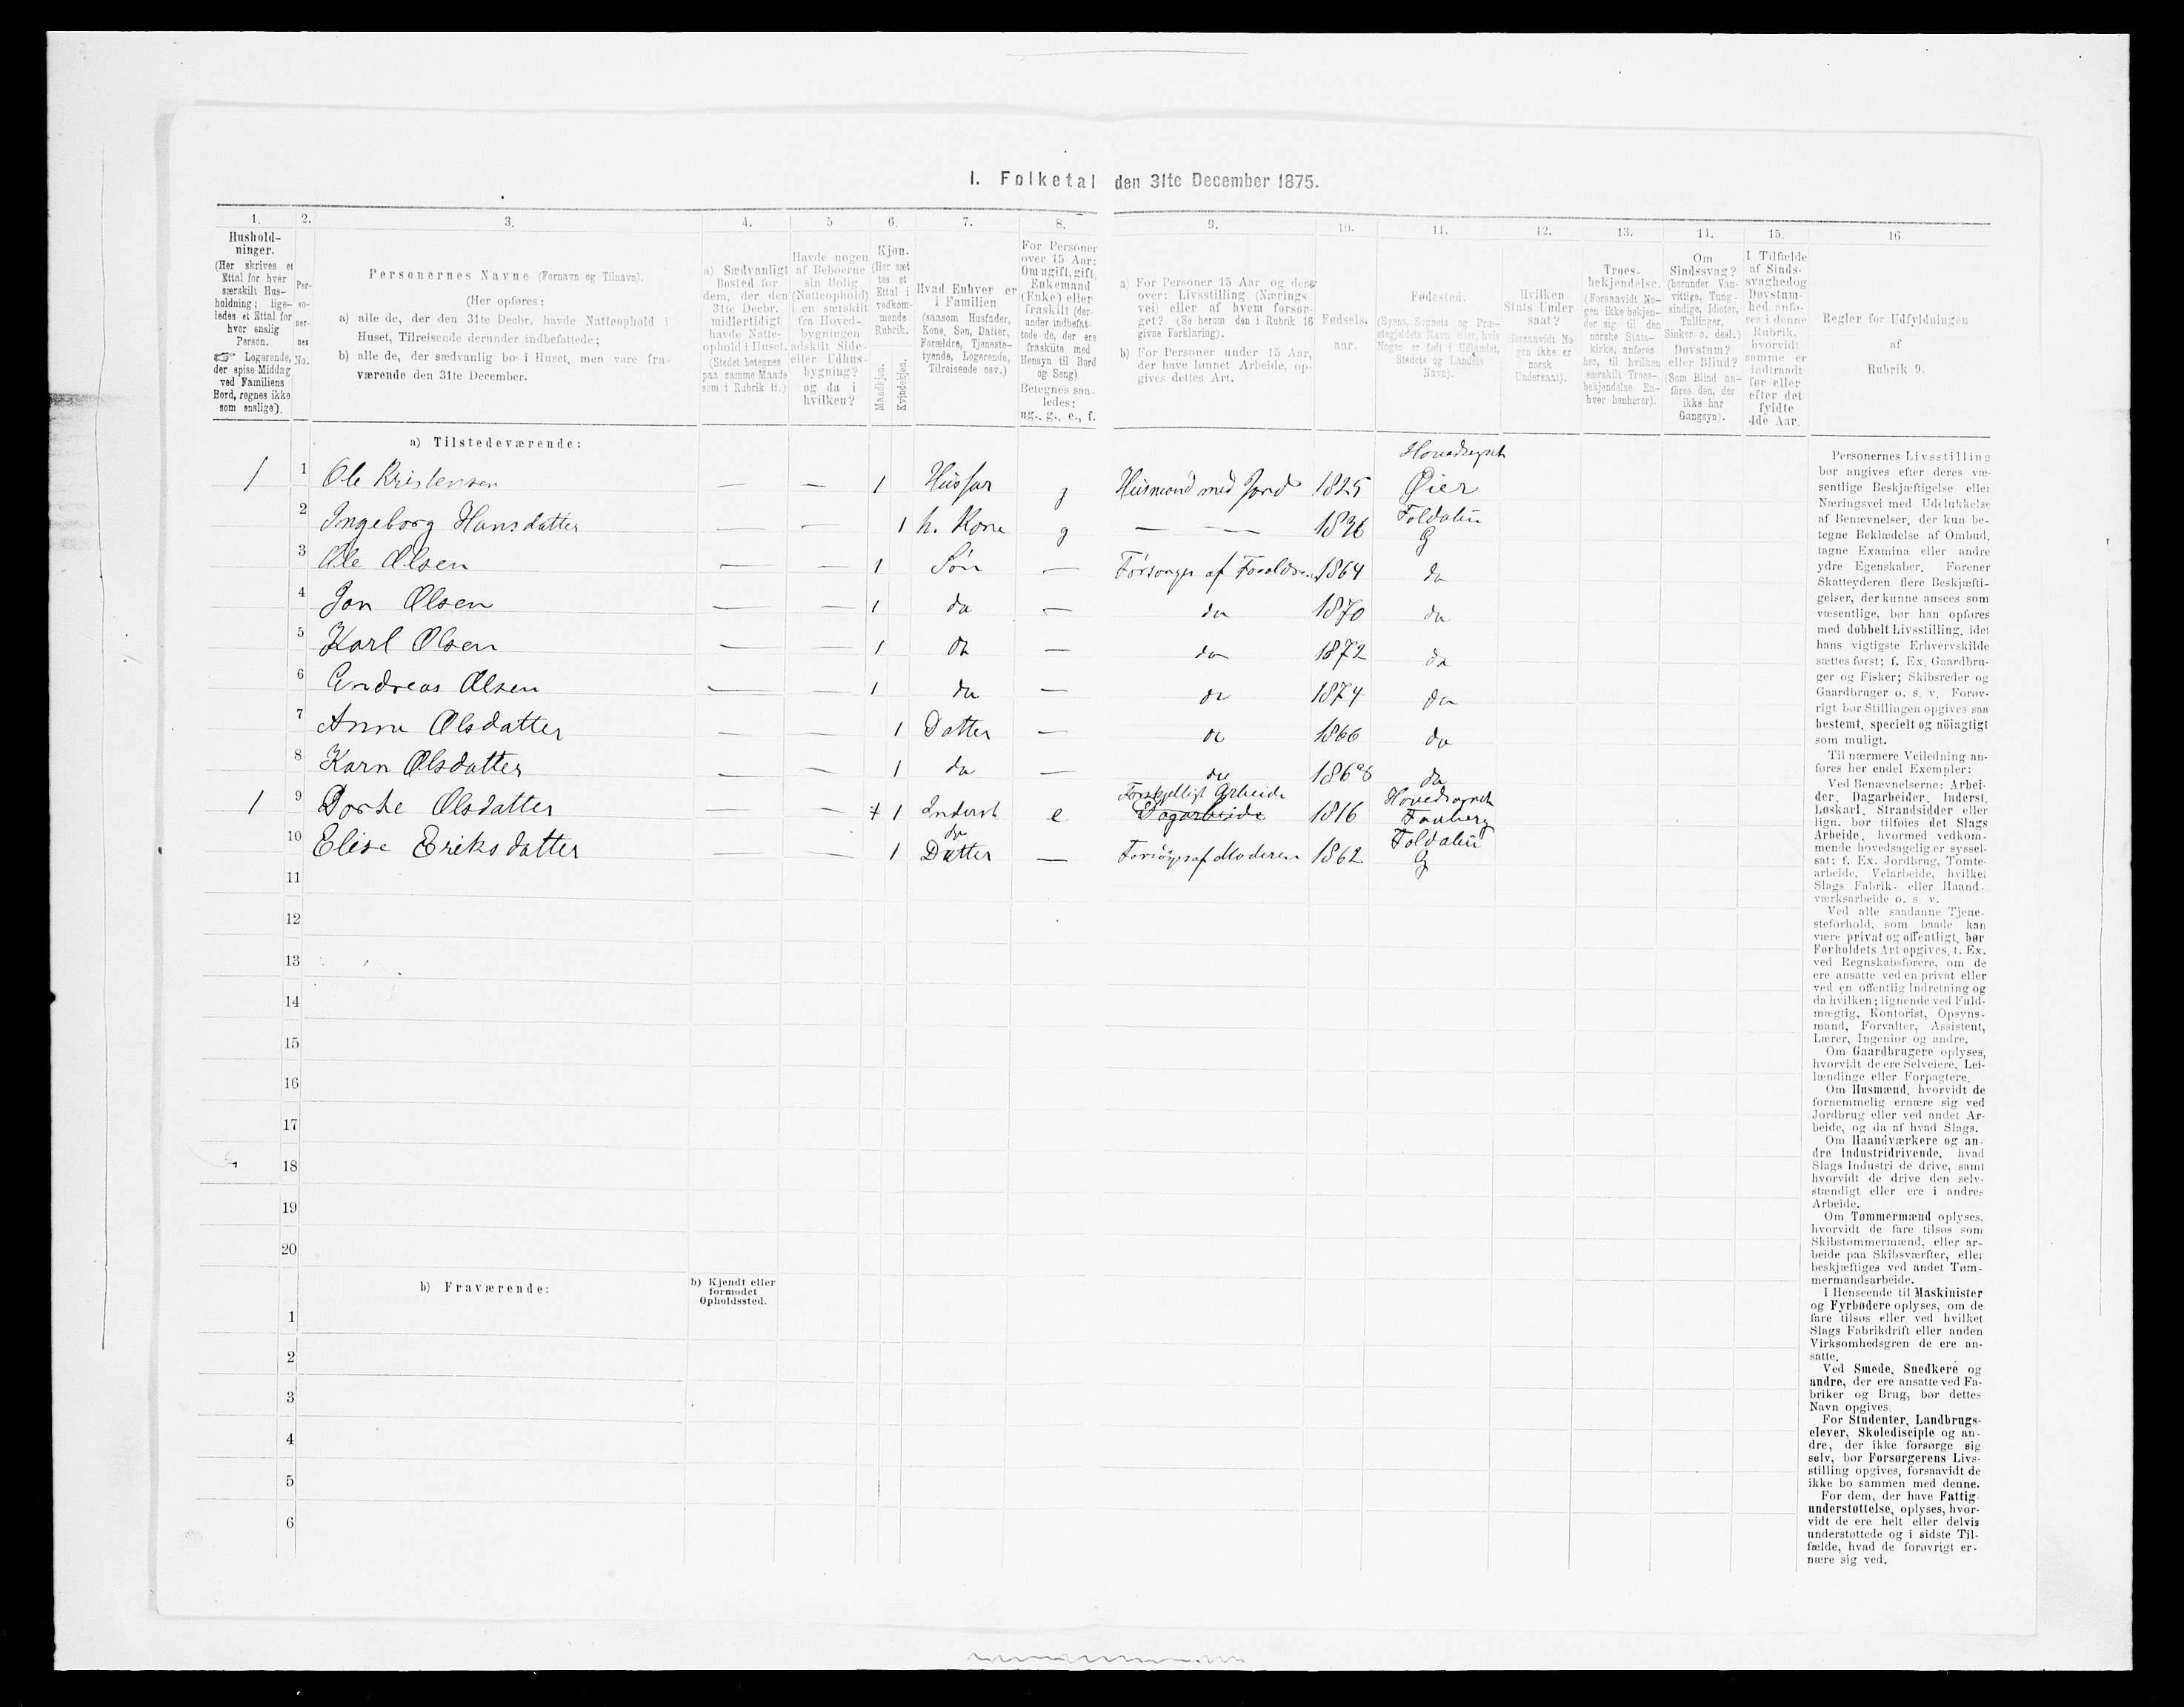 I. Folketal den 31te December 1875.
1. 2. 3. 4. 5 6. 7. 8. 9. 10. 11. 12. 13. 14. 15. 16
Hushold-
ninger.
(Her skrives et
Ettal for hver
særskilt Hus-
holdning; lige-
ledes et Ettal for
hver enslig
Person.
☞ Logerende,
der spise Middag
ved Familiens
Bord, regnes ikke
som enslige).
Per-
so-
ner-
nes
No.
Personernes Navne (Fornavn og Tilnavn).
(Her opføres:
a) alle de, der den 31te Decbr. havde Natteophold i
Huset, Tilreisende derunder indbefattede;
b) alle de, der sædvanlig bor i Huset, men vare fra-
værende den 31te December.
a) Sædvanligt
Bosted for
dem, der den
31te Decbr.
midlertidigt
havde Natte-
ophold i Huset.
(Stedet betegnes
paa samme Maade
som i Rubrik 11.)
Havde nogen
af Beboerne
sin Bolig
(Natteophold)
i en særskilt
fra Hoved-
bygningen
adskilt Side-
eller Udhus-
bygning?
og da i
hvilken?
Kjøn.
(Her sæt-
tes et
Ettal i
vedkom-
mende
Rubrik.
Mandkjøn.
Kvindekjøn.
Hvad Enhver er
i Familien
(saasom Husfader,
Kone, Søn, Datter,
Forældre, Tjeneste-
tyende, Logerende,
Tilreisende osv.)
For Personer
over 15 Aar:
Om ugift, gift,
Enkemand
(Enke) eller
fraskilt (der-
under indbefat-
tede de, der ere
fraskilte med
Hensyn til Bord
og Seng).
Betegnes saa-
ledes:
ug., g., e., f.
a) For Personer 15 Aar og der-
over: Livsstilling (Nærings
vei) eller af hvem forsør-
get? (Se herom den i Rubrik 16
givne Forklaring).
b) For Personer under 15 Aar,
der have lønnet Arbeide, op-
gives dettes Art.
Fødsels-
aar.
Fødested.
(Byens, Sognets og Præ-
stegjeldets Navn eller, hvis
Nogen er født i Udlandet,
Stedets og Landets
Navn).
Hvilken
Stats Under-
saat?
(forsaavidt No-
gen ikke er
norsk
Undersaat).
Troes-
bekjendelse.
(Forsaavidt No-
gen ikke bekjen-
der sig til den
norske Stats-
kirke, anføres
her, til hvilken
særskilt Troes-
bekjendelse En-
hver henhører).
Om
Sindssvag?
(herunder Van-
vittige, Tung-
sindige, Idioter,
Tullinger,
Sinker o. desl.)
Døvstum?
eller Blind?
(Som Blind an-
føres den, der
ikke har
Gangsyn).
I Tilfælde
af Sinds-
svaghed og
Døvstum-
hed anfø-
res i denne
Rubrik,
hvorvidt
samme er
indtraadt
før eller
efter det
fyldte
4de Aar.
Regler for Udfyldningen
af
Rubrik 9.
a) Tilstedeværende:
Hovedsognet
1 1 Ole Kristensen — — 1 Husfar g Husmand med Jord 1825 Øier
2 Ingeborg Hansdatter — — 1 h. Kone g — — 1836 Foldalin G
3 Ole Olsen — — 1 Søn — Forsørges af Forældrene 1864 do
4 Jon Olsen — — 1 do — do 1870 do
5 Karl Olsen — — 1 do — do 1872 do
6 Andreas Olsen — — 1 do — do 1874 do
7 Anne Olsdatter — — 1 Datter — do 1866 do
8 Karn Olsdatter — — 1 do — do 1868 do
Forskjelligt Arbeide Hovedsognet
1 9 Dorte Olsdatter — — 1 Inderst e Dagarbeide 1816 Faaberg
10 Elise Eriksdatter — — 1 ds Datter — Forsørges af Moderen 1862 Foldalin G
11
12
13
14
15
16
17
18
19
20
b) Fraværende:
b) Kjendt eller
formodet
Opholdssted.
1
2
3
4
5
6
Personernes Livsstilling
bør angives efter deres væ-
sentlige Beskjæftigelse eller
Næringsvei med Udelukkelse
af Benævnelser, der kun be-
tegne Beklædelse af Ombud,
tagne Examina eller andre
ydre Egenskaber. Forener
Skatteyderen flere Beskjæfti-
gelser, der kunne ansees som
væsentlige, bør han opføres
med dobbelt Livsstilling, idet
hans vigtigste Erhvervskilde
sættes først; f. Ex. Gaardbru-
ger og Fisker; Skibsreder og
Gaardbruger o. s. v. Forøv-
rigt bør Stillingen opgives saa
bestemt, specielt og nöiagtigt
som muligt.
Til nærmere Veiledning an-
føres her endel Exempler:
Ved Benævnelserne: Arbei-
der, Dagarbeider, Inderst,
Løskarl, Strandsidder eller
lign. bør tilføies det Slags
Arbeide, hvormed vedkom-
mende hovedsagelig er syssel-
sat; f. Ex. Jordbrug, Tomte-
arbeide, Veiarbeide, hvilket
Slags Fabrik- eller Haand-
værksarbeide o. s. v.
Ved alle saadanne Tjene-
steforhold, som baade kan
være privat og offentligt, bør
Forholdets Art opgives, t. Ex.
ved Regnskabsførere, om de
ere ansatte ved en privat eller
ved en offentlig Indretning og
da hvilken; lignende ved Fuld-
mægtig, Kontorist, Opsyns-
mand, Forvalter, Assistent,
Lærer, Ingeniør og andre.
Om Gaardbrugere oplyses,
hvorvidt de ere Selveiere, Lei-
lændinge eller Forpagtere.
Om Husmænd, hvorvidt de
fornemmelig ernære sig ved
Jordbrug eller ved andet Ar-
beide, og da af hvad Slags.
Om Haandværkere og an-
dre Industridrivende, hvad
Slags Industri de drive, samt
hvorvidt de drive den selv-
stændigt eller ere i andres
Arbeide.
Om Tømmermænd oplyses,
hvorvidt de fare tilsøs som
Skibstømmermænd, eller ar-
beide paa Skibsværfter, eller
beskjæftiges ved andet Tøm-
mermandsarbeide.
I Henseende til Maskinister
og Fyrbødere oplyses, om de
fare tilsøs eller ved hvilket
Slags Fabrikdrift eller anden
Virksomhedsgren de ere an-
satte.
Ved Smede, Snedkere og
andre, der ere ansatte ved Fa-
briker og Brug, bør dettes
Navn opgives.
For Studenter, Landbrugs-
elever, Skoledisciple og an-
dre, der ikke forsørge sig
selv, bør Forsørgerens Livs-
stilling opgives, forsaavidt de
ikke bo sammen med denne.
For dem, der have Fattig-
understøttelse, oplyses, hvor-
vidt de ere helt eller delvis
understøttede og i sidste Til-
fælde, hvad de forøvrigt er-
nære sig ved.